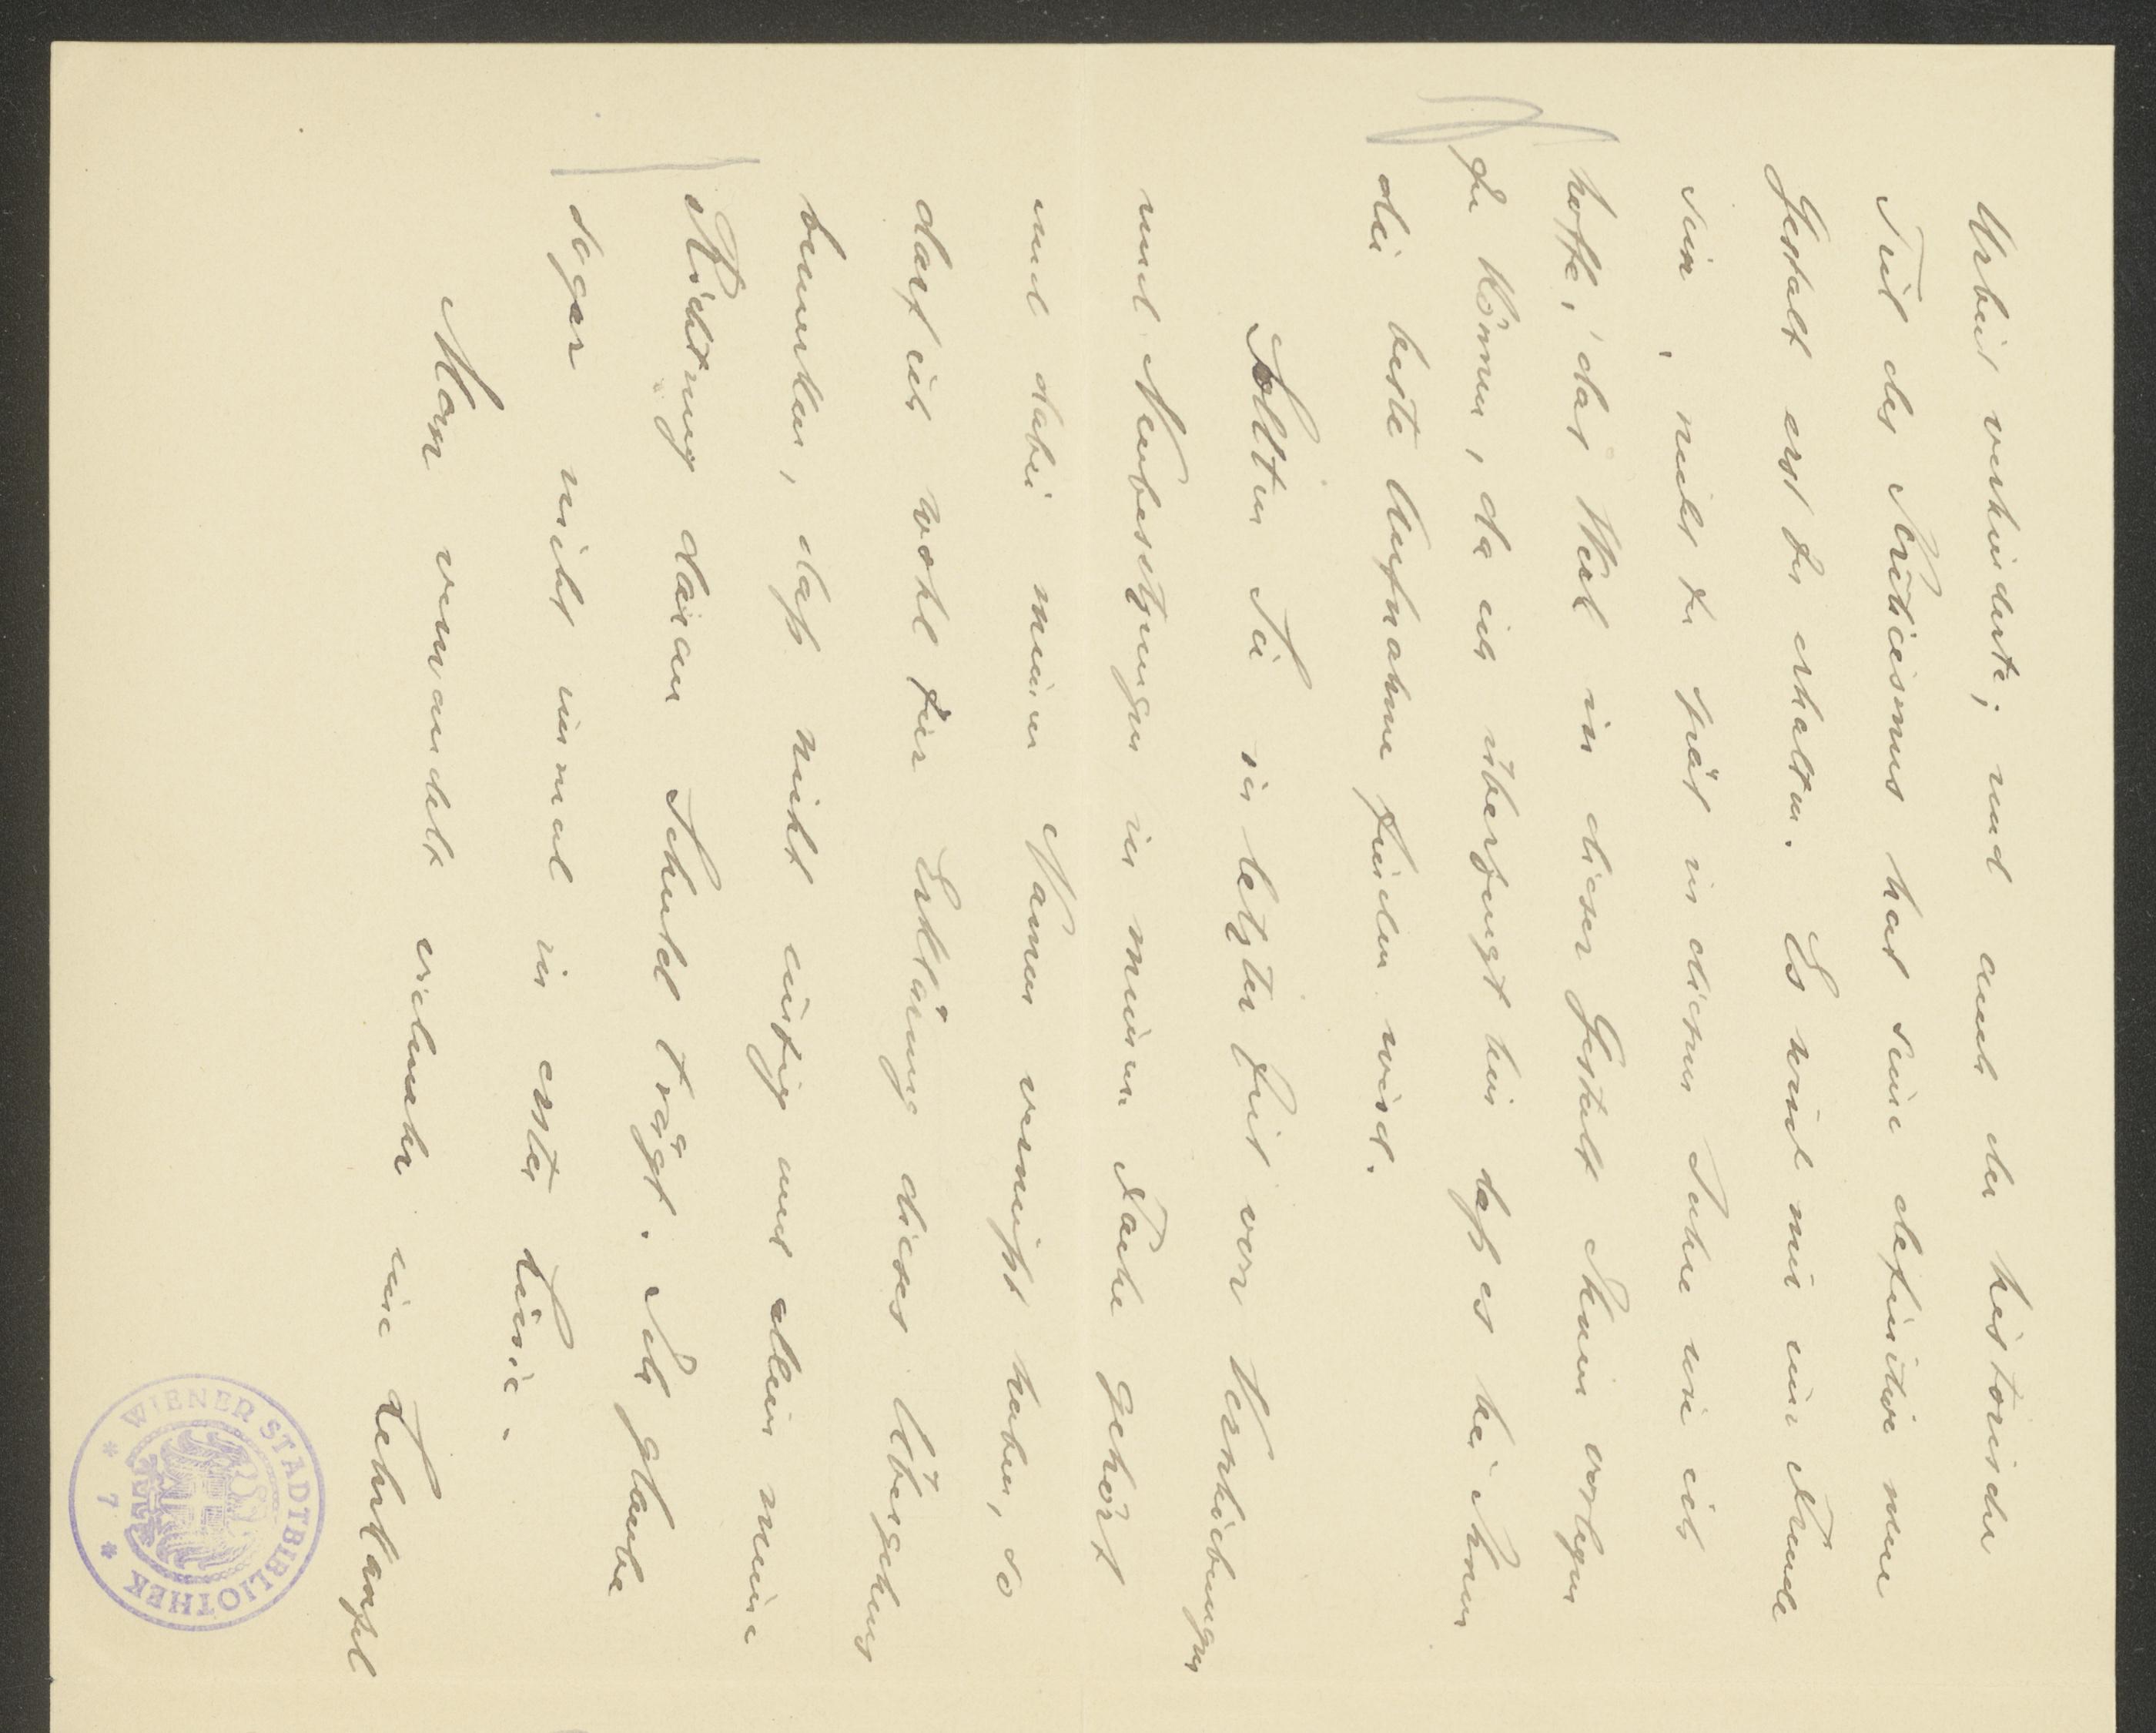 Arbeit verhinderte; und auch der historische
Teil des Kritiecismus hat seine definitive neue
Gestalt erst zu erhalten. Es wird mir eine Freude
sein, nicht zu spät in diesem Jahre wie ich
hoffe, das Werk in dieser Gestalt Ihnen vorlegen
zu können, da ich überzeugt bin daß es bei Ihnen
die beste Aufnahme finden wird.
Sollten Sie in letzter Zeit von Verschiebungen
und Neubesetzungen in meinem Fache gehört
und dabei meinen Namen vermißt haben, so
darf ich wohl zur Erklärung dieses Übergehens
bemerken, daß nicht einzig und allein meine
Richtung daran Schuld trägt. Ich glaube
sogar nicht einmal in erster Linie.
Man verwandelt vielmehr eine Lehrkanzel
WIENER STADTBIBLIOTHEK
* 7 *